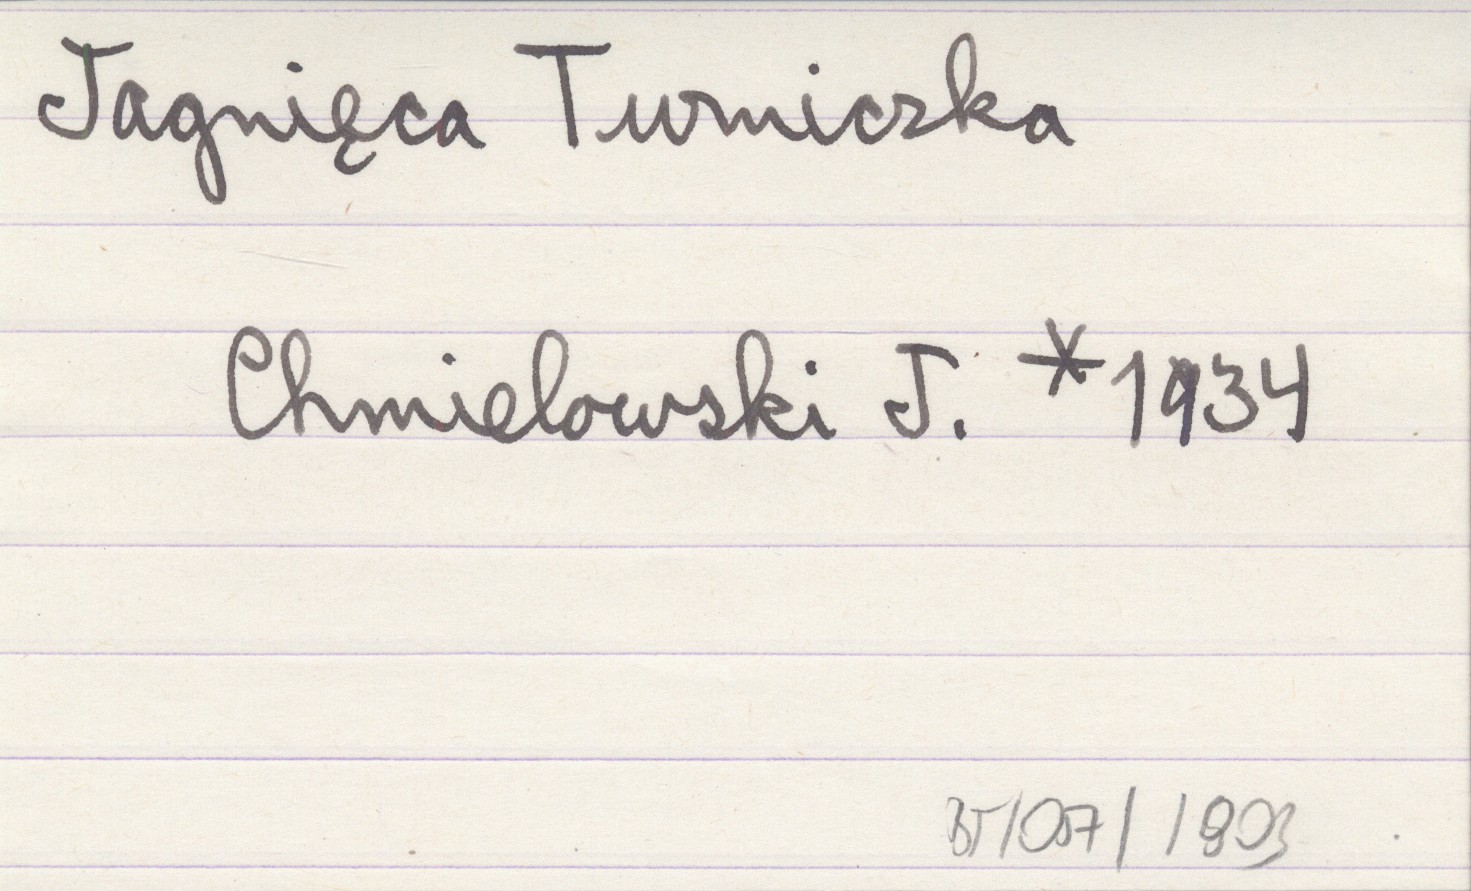 Jagnięca Turniczka
Chmielowski J. *1934
BT/057/1803